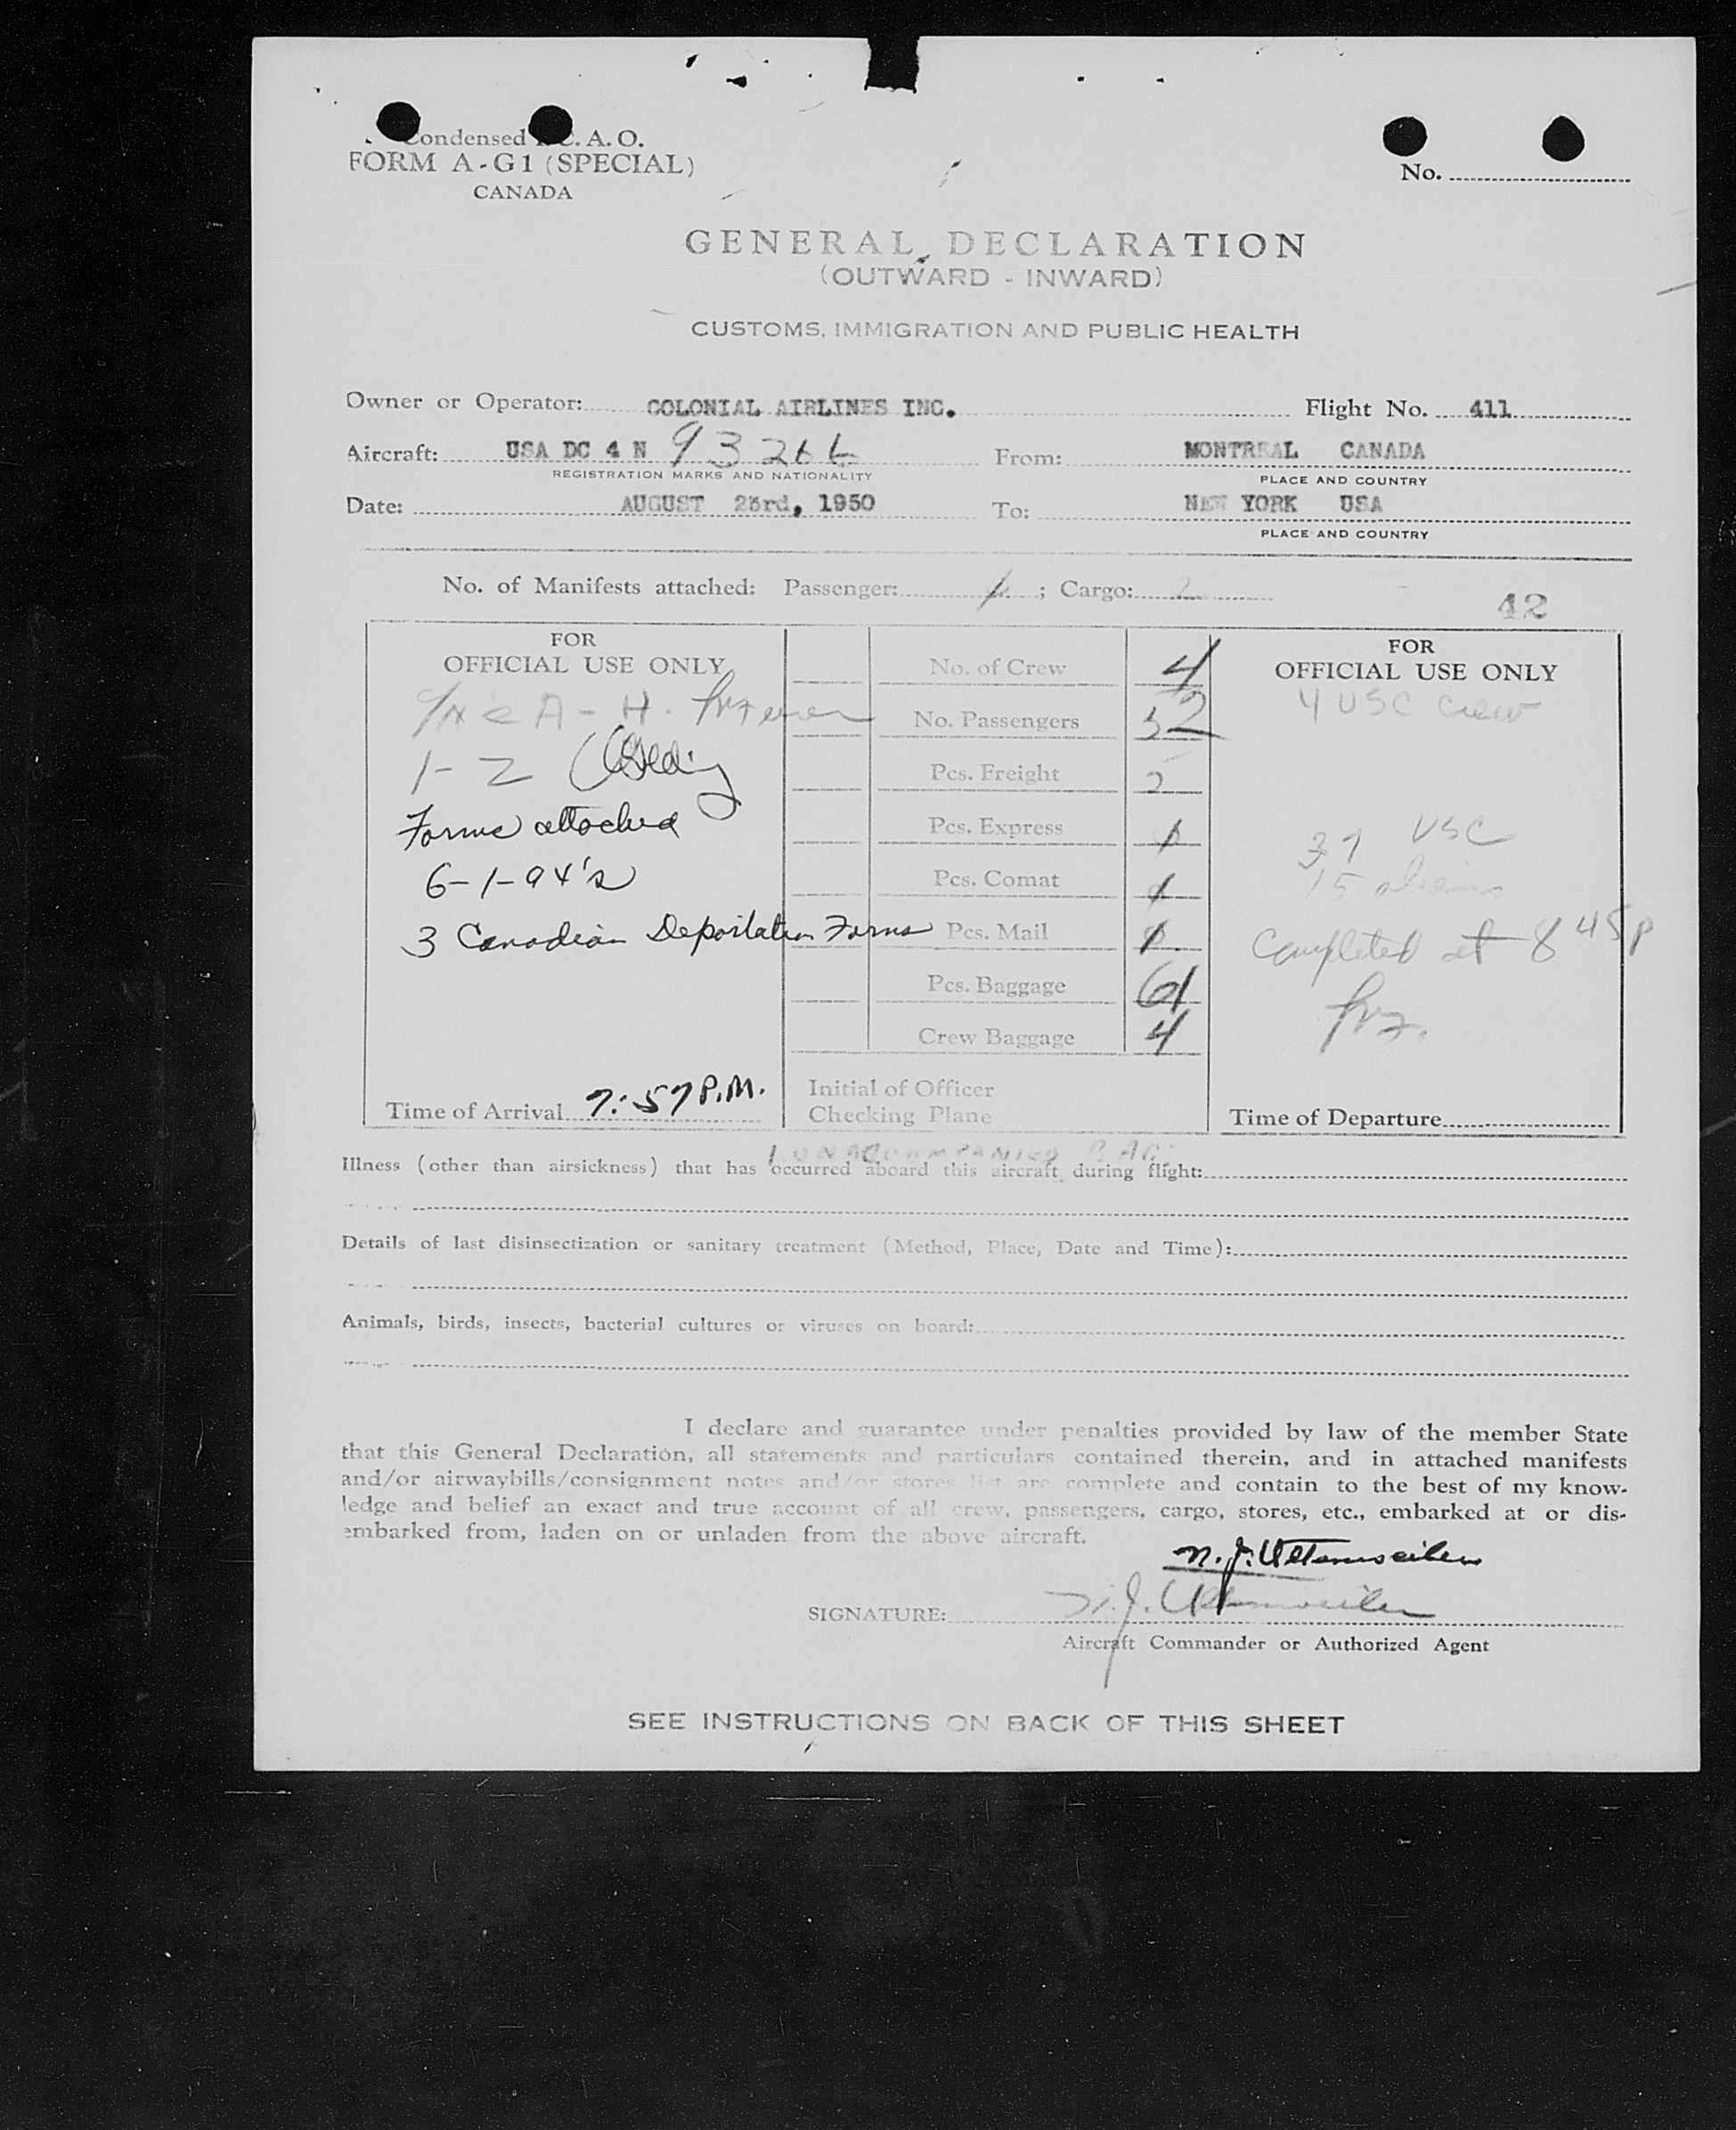 Condensed I.C.A.O.
FORM A-G1 (SPECIAL)
CANADA
No.
GENERAL DECLARATION
(OUTWARD - INWARD)
CUSTOMS, IMMIGRATION AND PUBLIC HEALTH
Owner or Operator: COLONIAL AIRLINES INC. Flight No. 411
Aircraft: USA DC 4 N 93266 From: MONTREAL CANADA
REGISTRATION MARKS AND NATIONALITY PLACE AND COUNTRY
Date: AUGUST 23rd, 1950 To: NEW YORK USA
PLACE AND COUNTRY
No. of Manifests attached: Passenger: ; Cargo: 2
42
FOR
OFFICIAL USE ONLY
1-2
Forms attached
6-1-94's
3 Canadian Deportation Forms
Time of Arrival 7:57 P.M.
No. of Crew 4
No. Passengers 52
Pcs. Freight 2
Pcs. Express
Pcs. Comat
Pcs. Mail
Pcs. Baggage 61
Crew Baggage 4
Initial of Officer
Checking Plane
FOR
OFFICIAL USE ONLY
4 USC crew
37 USC
15 aliens
Completed at 8 45 p
Time of Departure
1 UNACCOMPANIED BAG
Illness (other than airsickness) that has occurred aboard this aircraft during flight:
Details of last disinsectization or sanitary treatment (Method, Place, Date and Time):
Animals, birds, insects, bacterial cultures or viruses on board:
I declare and guarantee under penalties provided by law of the member State
that this General Declaration, all statements and particulars contained therein, and in attached manifests
and/or airwaybills/consignment notes and/or stores list are complete and contain to the best of my know-
ledge and belief an exact and true account of all crew, passengers, cargo, stores, etc., embarked at or dis-
embarked from, laden on or unladen from the above aircraft.
N. J.
SIGNATURE: N. J.
Aircraft Commander or Authorized Agent
SEE INSTRUCTIONS ON BACK OF THIS SHEET